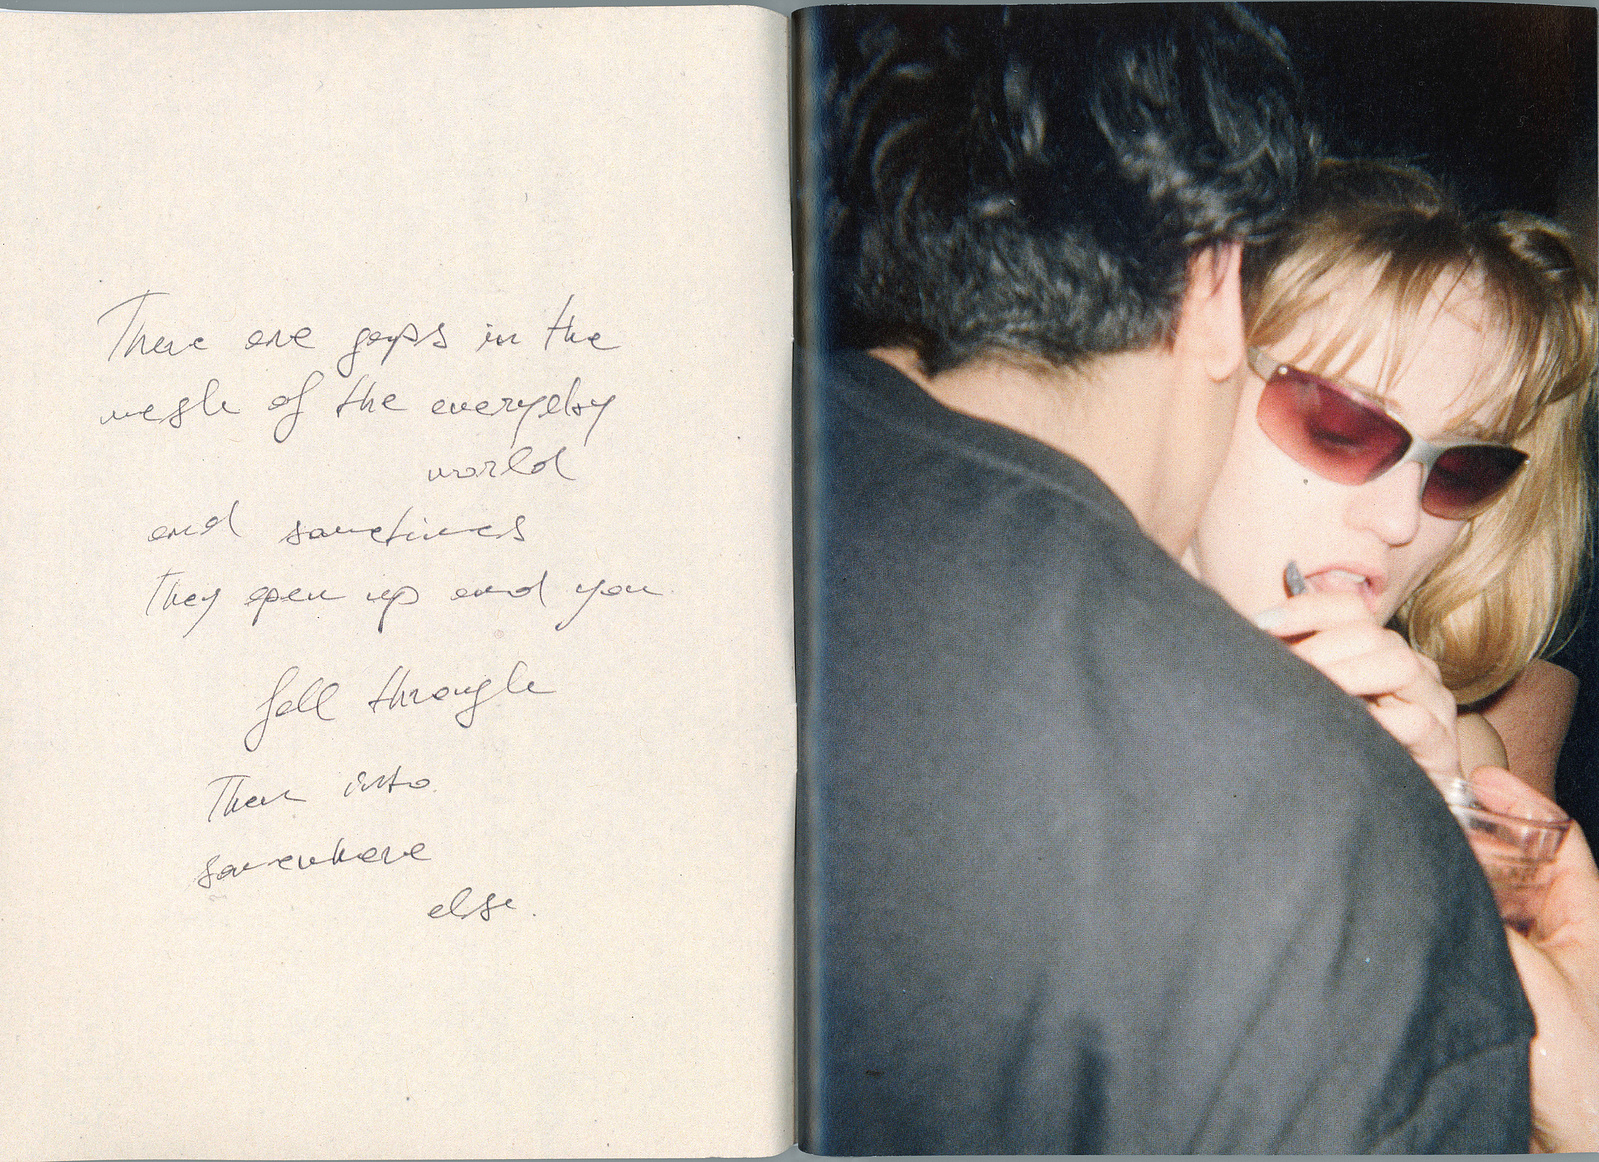 There are gaps in the
mesh of the everyday
world
and sometimes
They open up and you
fall through
Them into
somewhere
else.